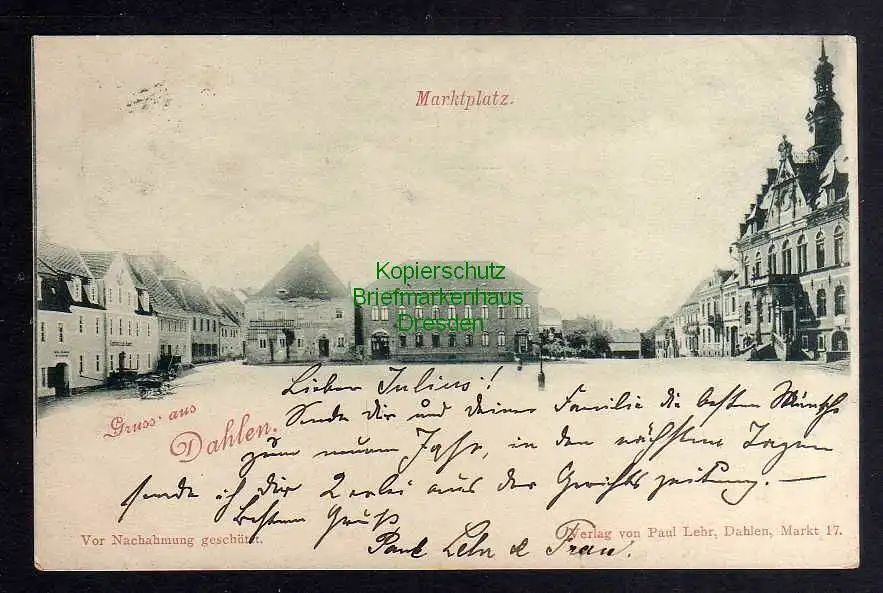 Marktplatz.
Kopierschutz
Briefmarkenhaus
Dresden
Gruss aus
Dahlen.
Lieber Julius!
Sende Dir und deiner Familie die besten Wünsche
zum neuen Jahr, in den nächsten Tagen
sende ich Dir aus der Gerichtszeitung. —
Besten Gruß
Paul Lehr & Frau.
Vor Nachahmung geschützt.
Verlag von Paul Lehr, Dahlen, Markt 17.